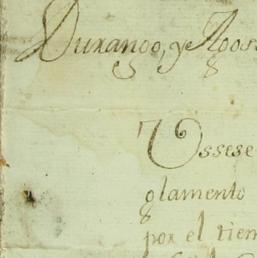 Durango, y Agos
Ussese
glamento
por el tiem